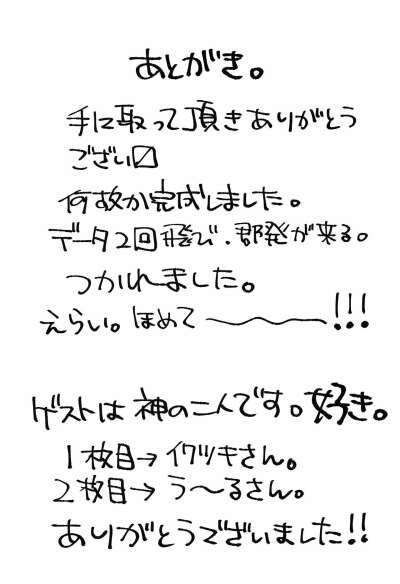 あとがき。
手に取って頂きありがとう
ござい〼
何故か完成しました。
データ2回飛び、群発が来る。
つかれました。
えらい。ほめて〜〜〜!!!
ゲストは神の二人です。好き。
1枚目→イワツキさん。
2枚目→う〜るさん。
ありがとうございました!!